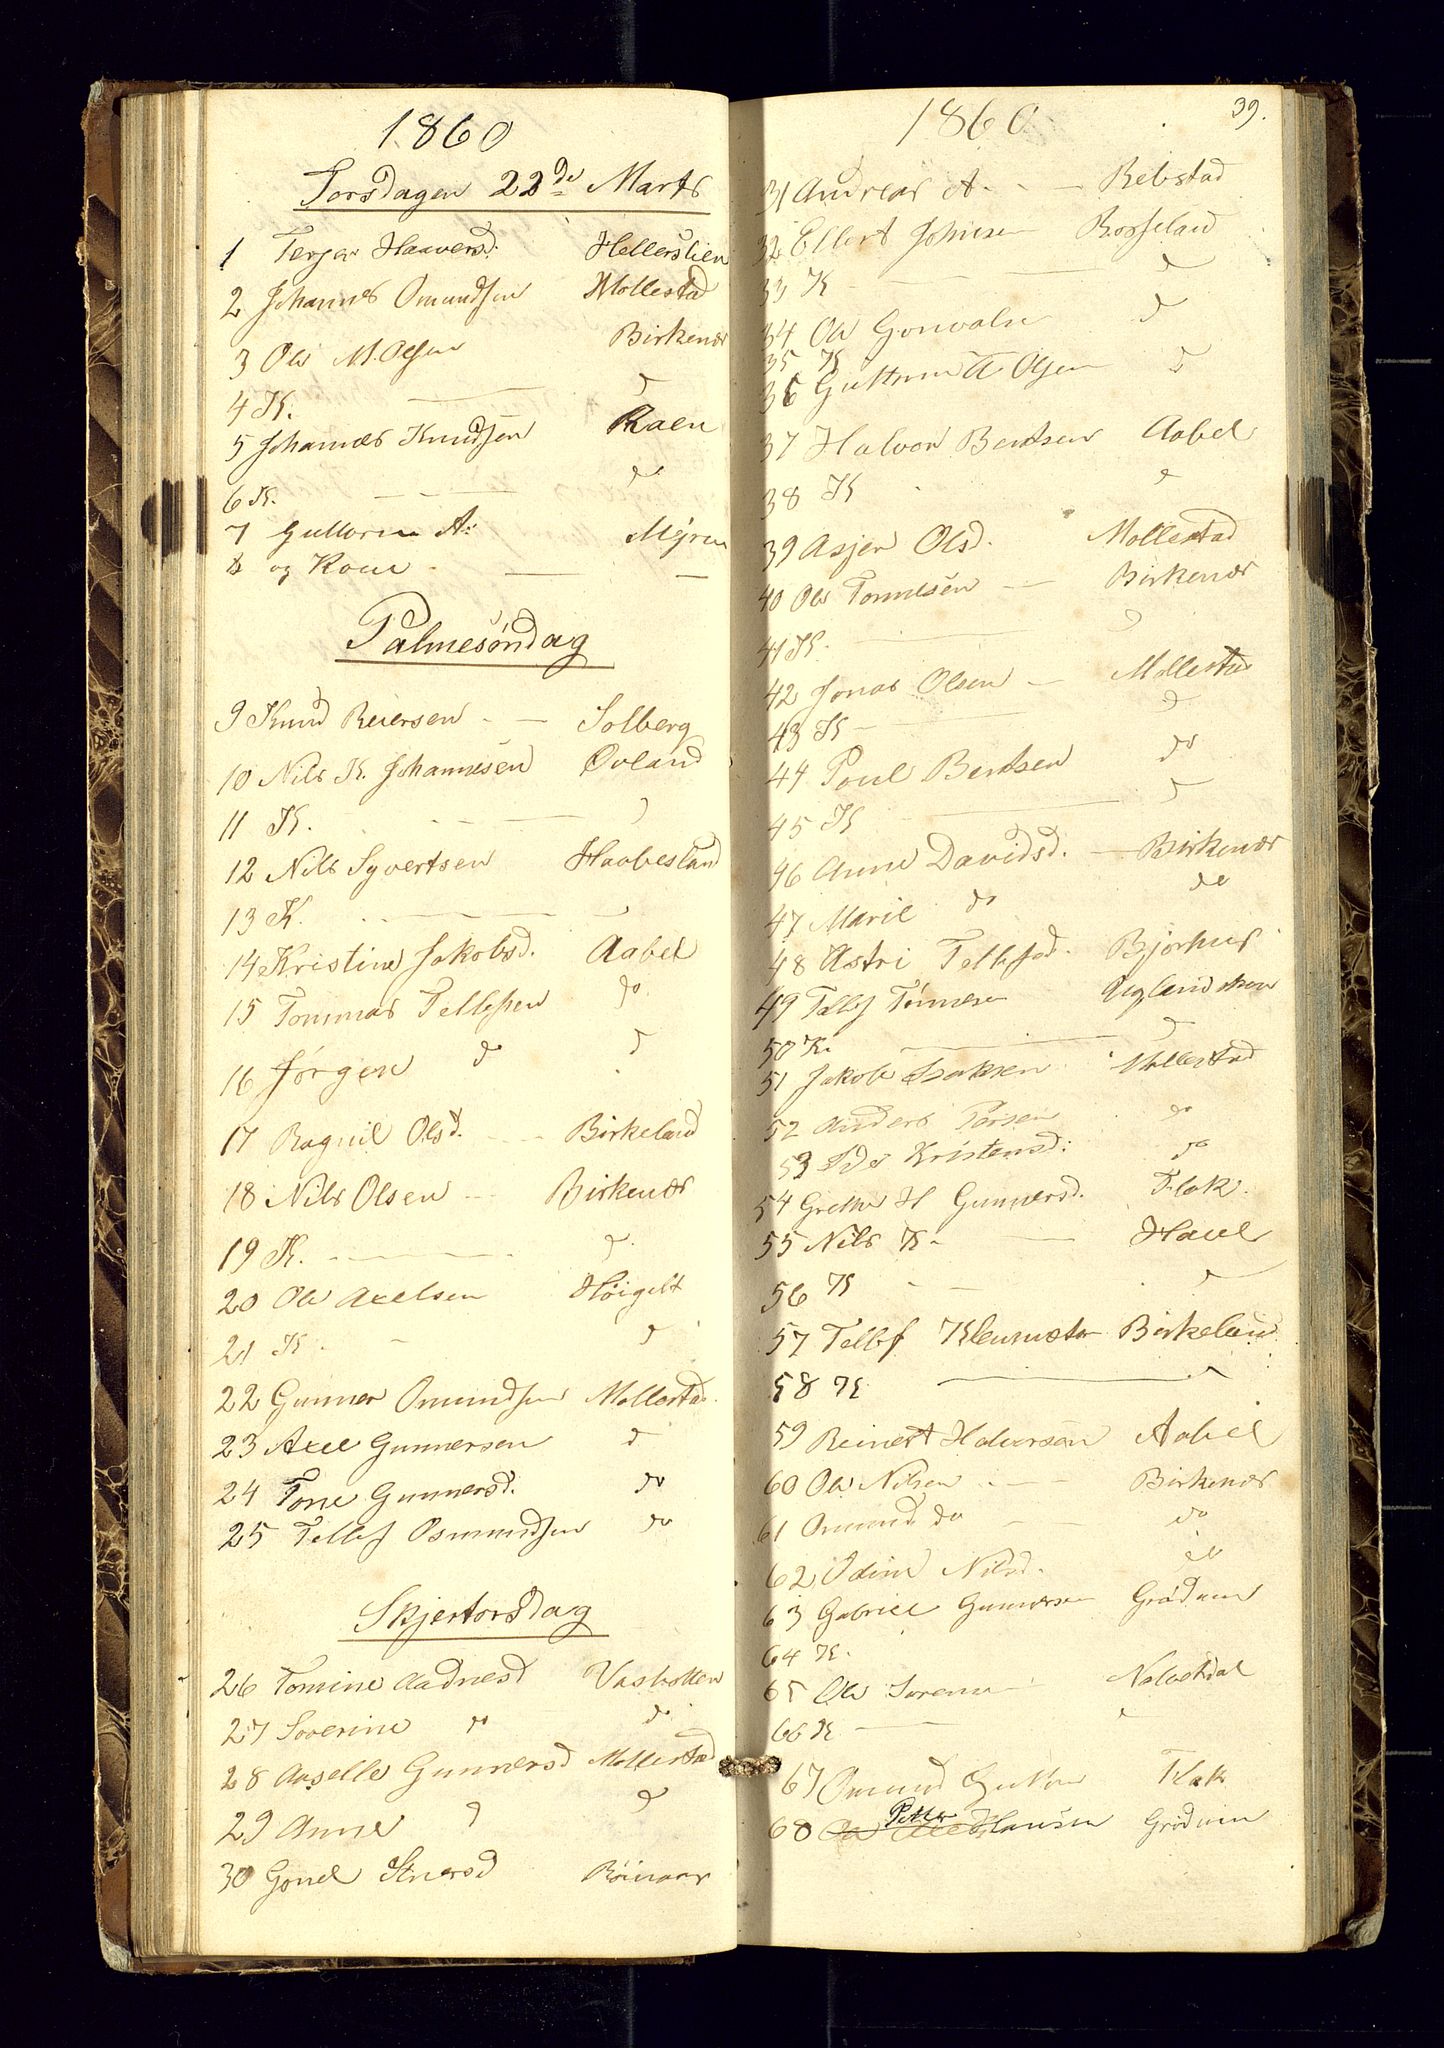 1860
Torsdagen 22de Marts
1 Terjer Haaversd. Hellerslien
2 Johannes Omundsen Mollestad
3 Ole M. Olsen Birkenær
4 K. — d
5 Johannes Knudsen Raen
6 K. — — — do
7 Guttorm A: Myren
8 og Kone — —
Palmesøndag
9 Knud Reiersen - — Solberg
10 Nils K. Johannesen Øvland
11 K. - - — — d
12 Nils Syvertsen Haabesland
13 K. — — —
14 Kristine Jakobsd. Aabel
15 Tommas Tellefsen do.
16 Jørgen d d
17 Ragnil Olsd. - - Birkeland
18 Nils Olsen - Birkenær
19 K. - — — d.
20 Ole Axelsen Høigilt
21 K. - d
22 Gunner Omundsen Mollestad.
23 Axel Gunnersen d
24 Tone Gunnersd. do
25 Tellef Osmundsen do
Skjertorsdag
26 Tomine Aadnesd Vasbotten
27 Soverine do do
28 Aaselle Gunnersd Mollestad
29 Anne d d
30 Gonel Stiersd Röinaas
1860
39.
31 Andreas A. - — Rebstad
32 Ellert Johnsen Bosseland
33 K - — — d
34 Ole Gonvalsen d
35 K
36 Guttorm A Olsen d
37 Halvor Bentsen Aabel
38 K - d
39 Asjer Olsd. Mollestad
40 Ole Tomesen — Birkenær
41 K. — d
42 Jonas Olsen — Mollestad
43 K — d
44 Poul Bentsen do
45 K — d
46 Anne Davidsd. — Birkenær
47 Marie do do
48 Astri Tellefsd. Bjorhus
49 Tellef Tønnesen Uglandsken
50 K. — d
51 Jakob Isaksen Mollestad
52 Anders Torsen do
53 Kristensd: do
54 Grethe H Gunnersd. Flak.
55 Nils K. — Haul
56 K - — d
57 Tellef Klemmetsen Birkeland
58 K. — d
59 Reinert Halversen Aabel
60 Ole Nilsen - — Birkenær
61 Omund do — do
62 Odine Nilsd. do
63 Gabriel Gunnersen Grødum
64 K.
65 Ole Sorensen
66 K — d
67 Omund Flak
68 Petter Hansen Grødum